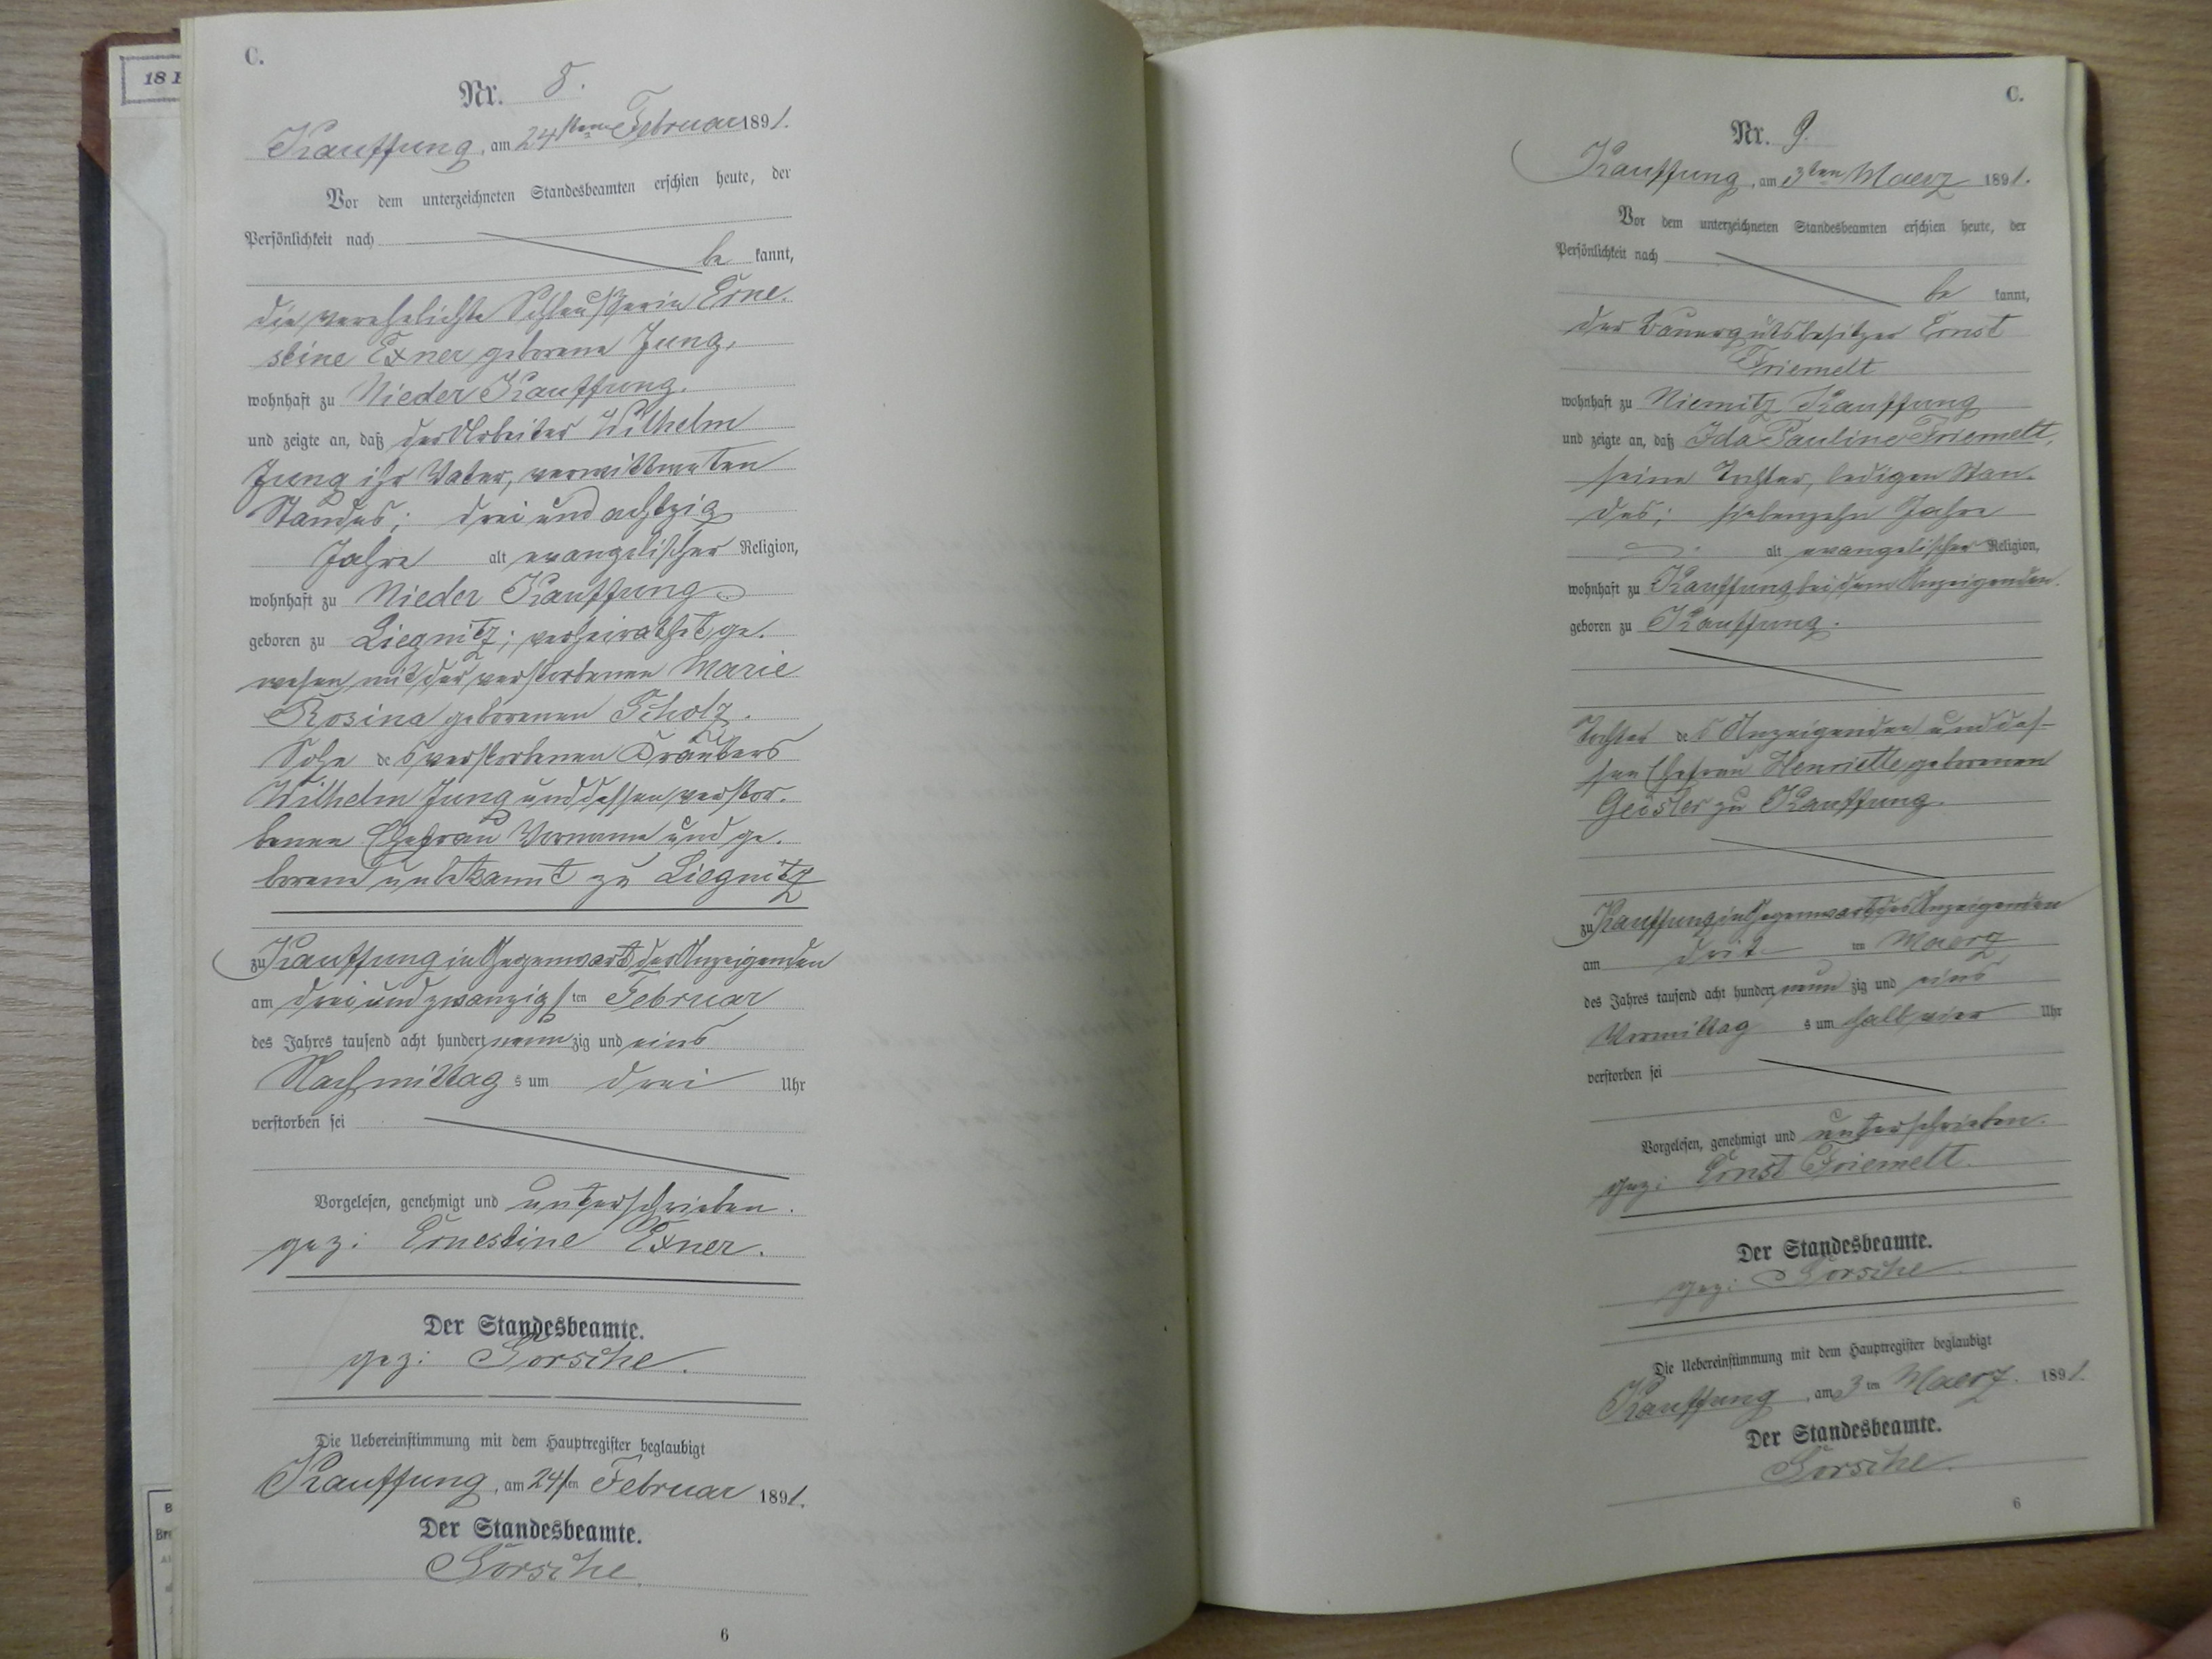 18
C.
Nr. 8.
Kauffung, am 24sten Februar 1891.
Vor dem unterzeichneten Standesbeamten erschien heute, der
Persönlichkeit nach
be kannt,
die verehelichte Schleußerin Erne-
stine Exner geborene Jung,
wohnhaft zu Nieder Kauffung.
und zeigte an, daß der Arbeiter Wilhelm
Jung ihr Vater, verwittweten
Standes; drei und achtzig
Jahre alt evangelischer Religion,
wohnhaft zu Nieder Kauffung
geboren zu Liegnitz; verheirathet ge-
wesen mit der verstorbenen Marie
Rosina geborenen Scholz.
Sohn des verstorbenen Kräuters
Wilhelm Jung und dessen verstor-
benen Ehefrau Vorname und ge-
borene unbekannt zu Liegnitz
zu Kauffung in Gegenwart der Anzeigenden
am drei und zwanzigsten Februar
des Jahres tausend acht hundert neunzig und eins
Nachmittags um drei Uhr
verstorben sei
Vorgelesen, genehmigt und unterschrieben.
gez: Ernestine Exner.
Der Standesbeamte.
gez: Gorsche.
Die Uebereinstimmung mit dem Hauptregister beglaubigt
Kauffung, am 24sten Februar 1891.
Der Standesbeamte.
Gorsche.
6
C.
Nr. 9.
Kauffung, am 3ten Maerz 1891.
Vor dem unterzeichneten Standesbeamten erschien heute, der
Persönlichkeit nach
be kannt,
der Bauergutsbesitzer Ernst
Friemelt
wohnhaft zu Niemitz Kauffung
und zeigte an, daß Ida Pauline Friemelt,
seine Tochter, ledigen Stan-
des; siebenzehn Jahre
alt evangelischer Religion,
wohnhaft zu Kauffung bei dem Anzeigenden.
geboren zu Kauffung.
Tochter des Anzeigenden und des-
sen Ehefrau Henriette geborenen
Geisler zu Kauffung.
zu Kauffung in Gegenwart des Anzeigenden
am dritten Maerz
des Jahres tausend acht hundert neunzig und eins
Vormittags um halb vier Uhr
verstorben sei
Vorgelesen, genehmigt und unterschrieben.
gez: Ernst Friemelt.
Der Standesbeamte.
gez: Gorsche.
Die Uebereinstimmung mit dem Hauptregister beglaubigt
Kauffung, am 3ten Maerz 1891.
Der Standesbeamte.
Gorsche.
6